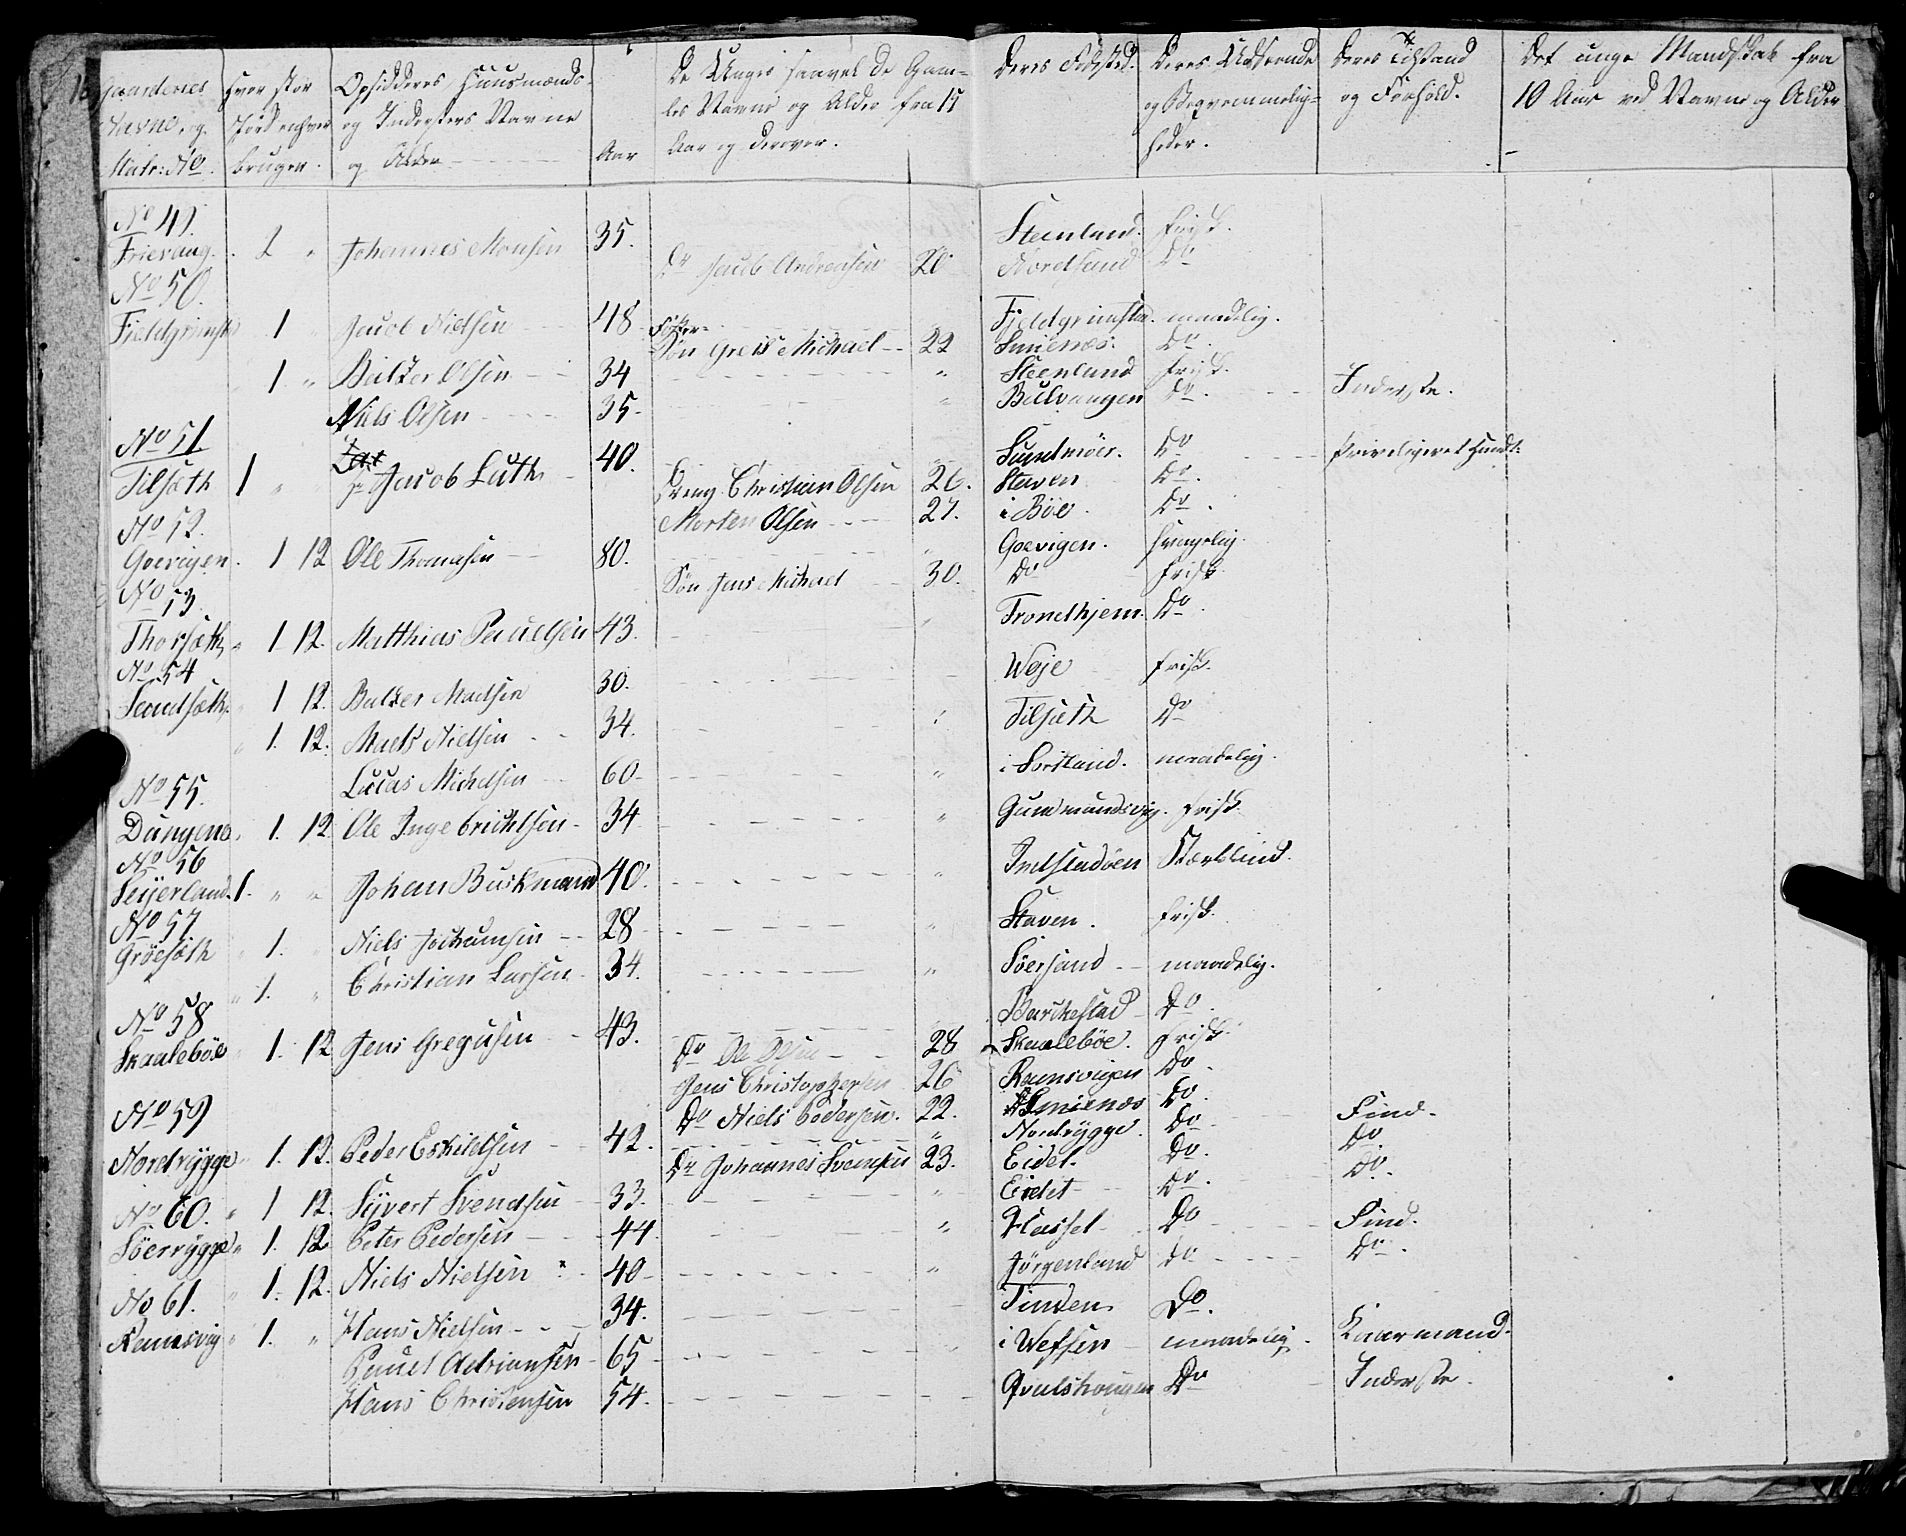 Gaardenes Navne, og Matr: No.
Hvor stor Jord enhver bruger.
Opsidderes Huusmænds- og Inderster Navne og Alder
Aar
De Unges saavel de Gamles Navne og Alder fra 15 Aar og derover.
Deres Fødsted.
Deres Udseende og Beqvemmeligheder.
Deres Tilstand og Forhold.
Det unge Mandskab fra 10 Aar ved Navne og Alder
No 49.
Frievang. 2 " Johannes Monsen 35. Steenland. frisk.
Do Jacob Andreasen 20 Nordsand Do
No 50.
Fjeldgrimst 1 Jacob Nielsen 48 Fjeldgrimstad. maadelig.
Foster-
Søn Greis Michael 22 Smienæs. Do.
" 1. " Baltzer Olsen 34 " Steenland frisk.
Niels Olsen 35. " Bülvaagen Do. Inderste.
No 51
Tilsæth 1 " Jacob Lüth 40. Sundmöer. Do Priveligeret Handl:
Dreng Christian Olsen 26. Staven Do.
Morten Olsen 27. i Böe. Do.
No 52.
Goevigen. 1 12 Ole Thomesen 80. Goevigen. svagelig.
Søn Jens Michael 30. Do frisk
No 53
Thorsæth " 1 12. Matthias Pauelsen 43. " Trondhjem. Do.
No 54
Sandsæth. " 1 12. Baltzer Madsen 30. Weje frisk.
" 1. 12. Mads Nielsen 34. " Tilsæth Do
Lucas Michelsen 60 " i Sortland. maadelig.
No 55.
Düngene. 1. 12 Ole Ingebrichtsen 34 " Gudmundsvig. frisk.
No 56
Seyerland. 1. " " Johan Buschmand 40. " Indstadöen Stærblind.
No 57
Gröesæth " 1. " Niels Jochumsen 28 " Staven. frisk.
" 1. " Christian Larsen 34. " Söersand maadelig.
No 58
Skaaleböe " 1. 12 Jens Gregusen 43. Barckestad Do.
Do Ole Olsen 28 Skaaleböe. frisk.
Jens Christophersen 26 Ramsvigen Do.
Do Niels Pedersen. 22. Smienæs Do.
No 59
Nordrygge 1. 12. Peder Eskildsen 42. " Nordrygge. Do Find.
Do Johannes Svensen 23. Eidet. Do. Do.
No 60. " 1 12. Sivert Svendsen 33. " Eidet Do. Do.
Söerrygge " 1. 12. Peter Pedersen 44 " Hassel Do Find.
" 1. 12. Niels Nielsen 40 " Jörgenland Do Do.
No 61.
Ramsvig " 1. " Hans Nielsen 34. Tinden Do.
Pauel Adriansen 65 " i Wefsen maadelig. Kaarmand.
Hans Christensen 54. Do Inderste.